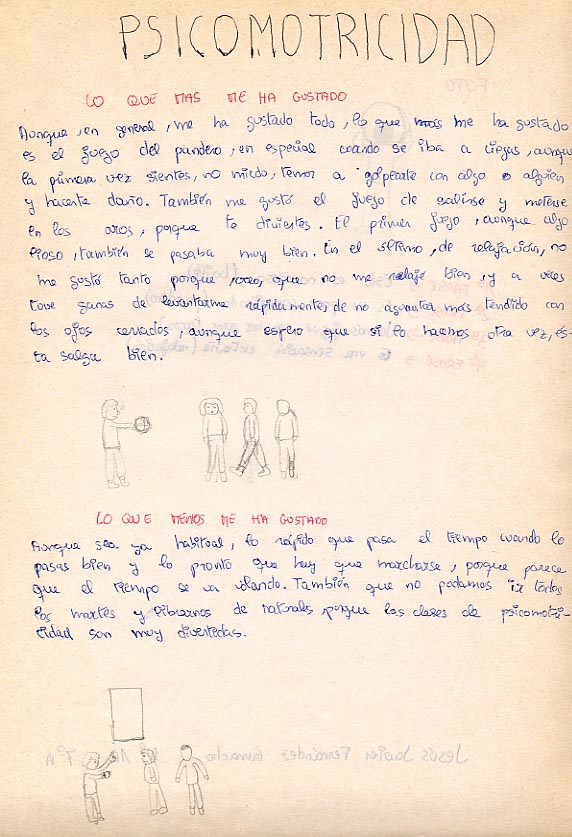 PSICOMOTRICIDAD
LO QUE MAS ME HA GUSTADO
Aunque, en general, me ha gustado todo, lo que más me ha gustado
es el juego del pandero, en especial cuando se iba a ciegas, aunque
la primera vez sientes, no miedo, temor a golpearte con algo o alguien
y hacerte daño. También me gustó el juego de salirse y meterse
en los aros, porque te diviertes. El primer juego, aunque algo
lioso, también se pasaba muy bien. En el último, de relajación, no
me gustó tanto porque, creo, que no me relaje bien, y a veces
tove ganas de levantarme rápidamente, de no aguantar más tendido con
los ojos cerrados, aunque espero que si lo hacemos otra vez, és-
ta salga bien.
LO QUE MENOS ME HA GUSTADO
Aunque sea ya habitual, lo rápido que pasa el tiempo cuando lo
pasas bien y lo pronto que hay que marcharse, porque parece
que el tiempo se va volando. También que no podamos ir todos
los martes y librarnos de naturales, porque las clases de psicomotri-
cidad son muy divertidas.
FOTO
Jesús Javier Fernández Camacho